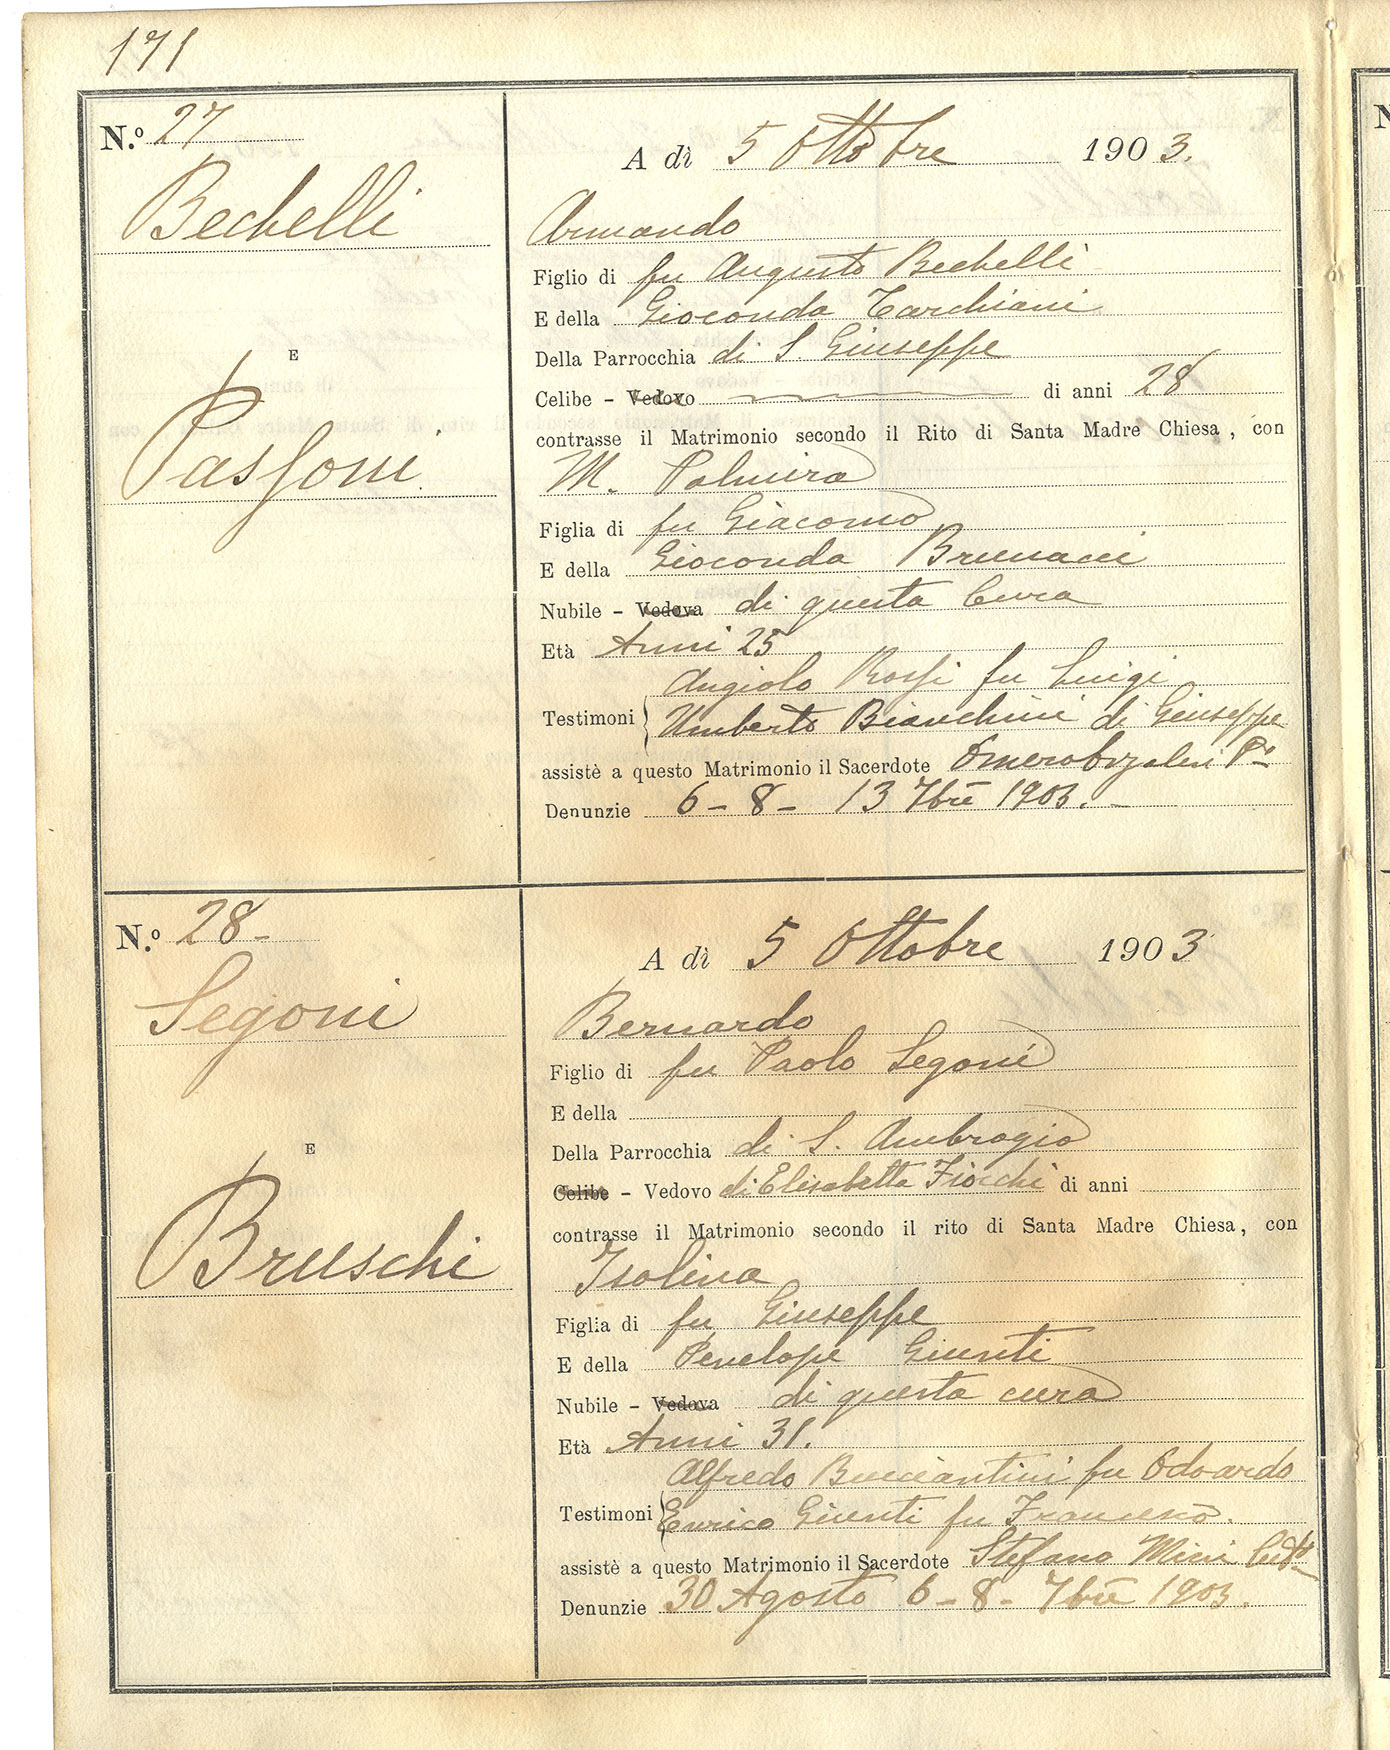 171
N.º 27
Bechelli
E
Passoni
A dì 5 Ottobre 1903.
Armando
Figlio di fu Augusto Bechelli
E della Gioconda Tarchiani
Della Parrocchia di S. Giuseppe
Celibe - Vedovo di anni 28
contrasse il Matrimonio secondo il Rito di Santa Madre Chiesa, con
M. Palmira
Figlia di fu Giacomo
E della Gioconda Brunacci
Nubile - Vedova di questa Cura
Età Anni 25
Angiolo Rossi fu Luigi
Testimoni Umberto Bianchini di Giuseppe
assistè a questo Matrimonio il Sacerdote
Denunzie 6 - 8 - 13 7bre 1903.
N.º 28-
Segoni
E
Bruschi
A dì 5 Ottobre 1903
Bernardo
Figlio di fu Paolo Segoni
E della
Della Parrocchia di S. Ambrogio
Celibe - Vedovo di Elisabetta Fiocchi di anni
contrasse il Matrimonio secondo il rito di Santa Madre Chiesa, con
Isolina
Figlia di fu Giuseppe
E della Penelope Giunti
Nubile - Vedova di questa cura
Età Anni 31.
Alfredo Bucciantini fu Odoardo
Testimoni Enrico Giunti fu Francesco.
assistè a questo Matrimonio il Sacerdote Stefano Mini
Denunzie 30 Agosto 6 - 8 - 7bre 1903.